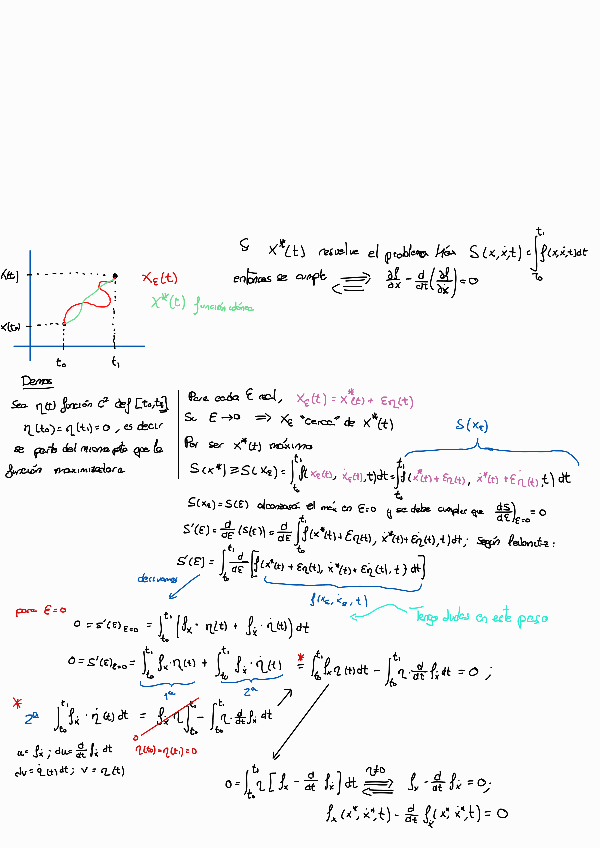 Si X*(t) resuelve el problema Máx S(x,ẋ,t) = ∫_{t₀}^{t₁} f(x,ẋ,t)dt
entonces se cumple ⟺ ∂f/∂x - d/dt(∂f/∂ẋ) = 0
x(t₁)
X_ε(t)
X*(t) función idónea
x(t₀)
t₀ t₁
Demos
Sea η(t) función C² def [t₀,t₁]
η(t₀) = η(t₁) = 0, es decir
se parte del mismo pto que la
función maximizadora
Para cada ε real, X_ε(t) = X*(t) + εη(t)
Si ε → 0 ⟹ X_ε "cerca" de X*(t)
S(x_ε)
Por ser X*(t) máximo
S(x*) ≥ S(x_ε) = ∫_{t₀}^{t₁} f(x_ε(t), ẋ_ε(t), t)dt = ∫_{t₀}^{t₁} f(x*(t) + εη(t), ẋ*(t) + εη̇(t), t) dt
S(x_ε) = S(ε) alcanzará el máx en ε=0 y se debe cumplir que dS/dε|_{ε=0} = 0
S'(ε) = d/dε (S(ε)) = d/dε ∫_{t₀}^{t₁} f(x*(t) + εη(t), ẋ*(t) + εη̇(t), t)dt; según Leibnitz:
S'(ε) = ∫_{t₀}^{t₁} d/dε [f(x*(t) + εη(t), ẋ*(t) + εη̇(t), t) dt]
derivamos
f(x_ε, ẋ_ε, t)
para ε=0
Tengo dudas en este paso
0 = S'(ε)_{ε=0} = ∫_{t₀}^{t₁} (f_x · η(t) + f_ẋ · η̇(t)) dt
0 = S'(ε)_{ε=0} = ∫_{t₀}^{t₁} f_x · η(t) + ∫_{t₀}^{t₁} f_ẋ · η̇(t) =* ∫_{t₀}^{t₁} f_x η(t)dt - ∫_{t₀}^{t₁} η · d/dt f_ẋ dt = 0 ;
1ª 2ª
* 2ª ∫_{t₀}^{t₁} f_ẋ · η̇(t) dt = f_ẋ η]_{t₀}^{t₁} - ∫_{t₀}^{t₁} η · d/dt f_ẋ dt
0
u = f_ẋ ; du = d/dt f_ẋ dt
η(t₀) = η(t₁) = 0
dv = η̇(t)dt ; v = η(t)
0 = ∫_{t₀}^{t₁} η [f_x - d/dt f_ẋ] dt ⟺ η≠0 f_x - d/dt f_ẋ = 0;
f_x(x*, ẋ*, t) - d/dt f_ẋ(x*, ẋ*, t) = 0